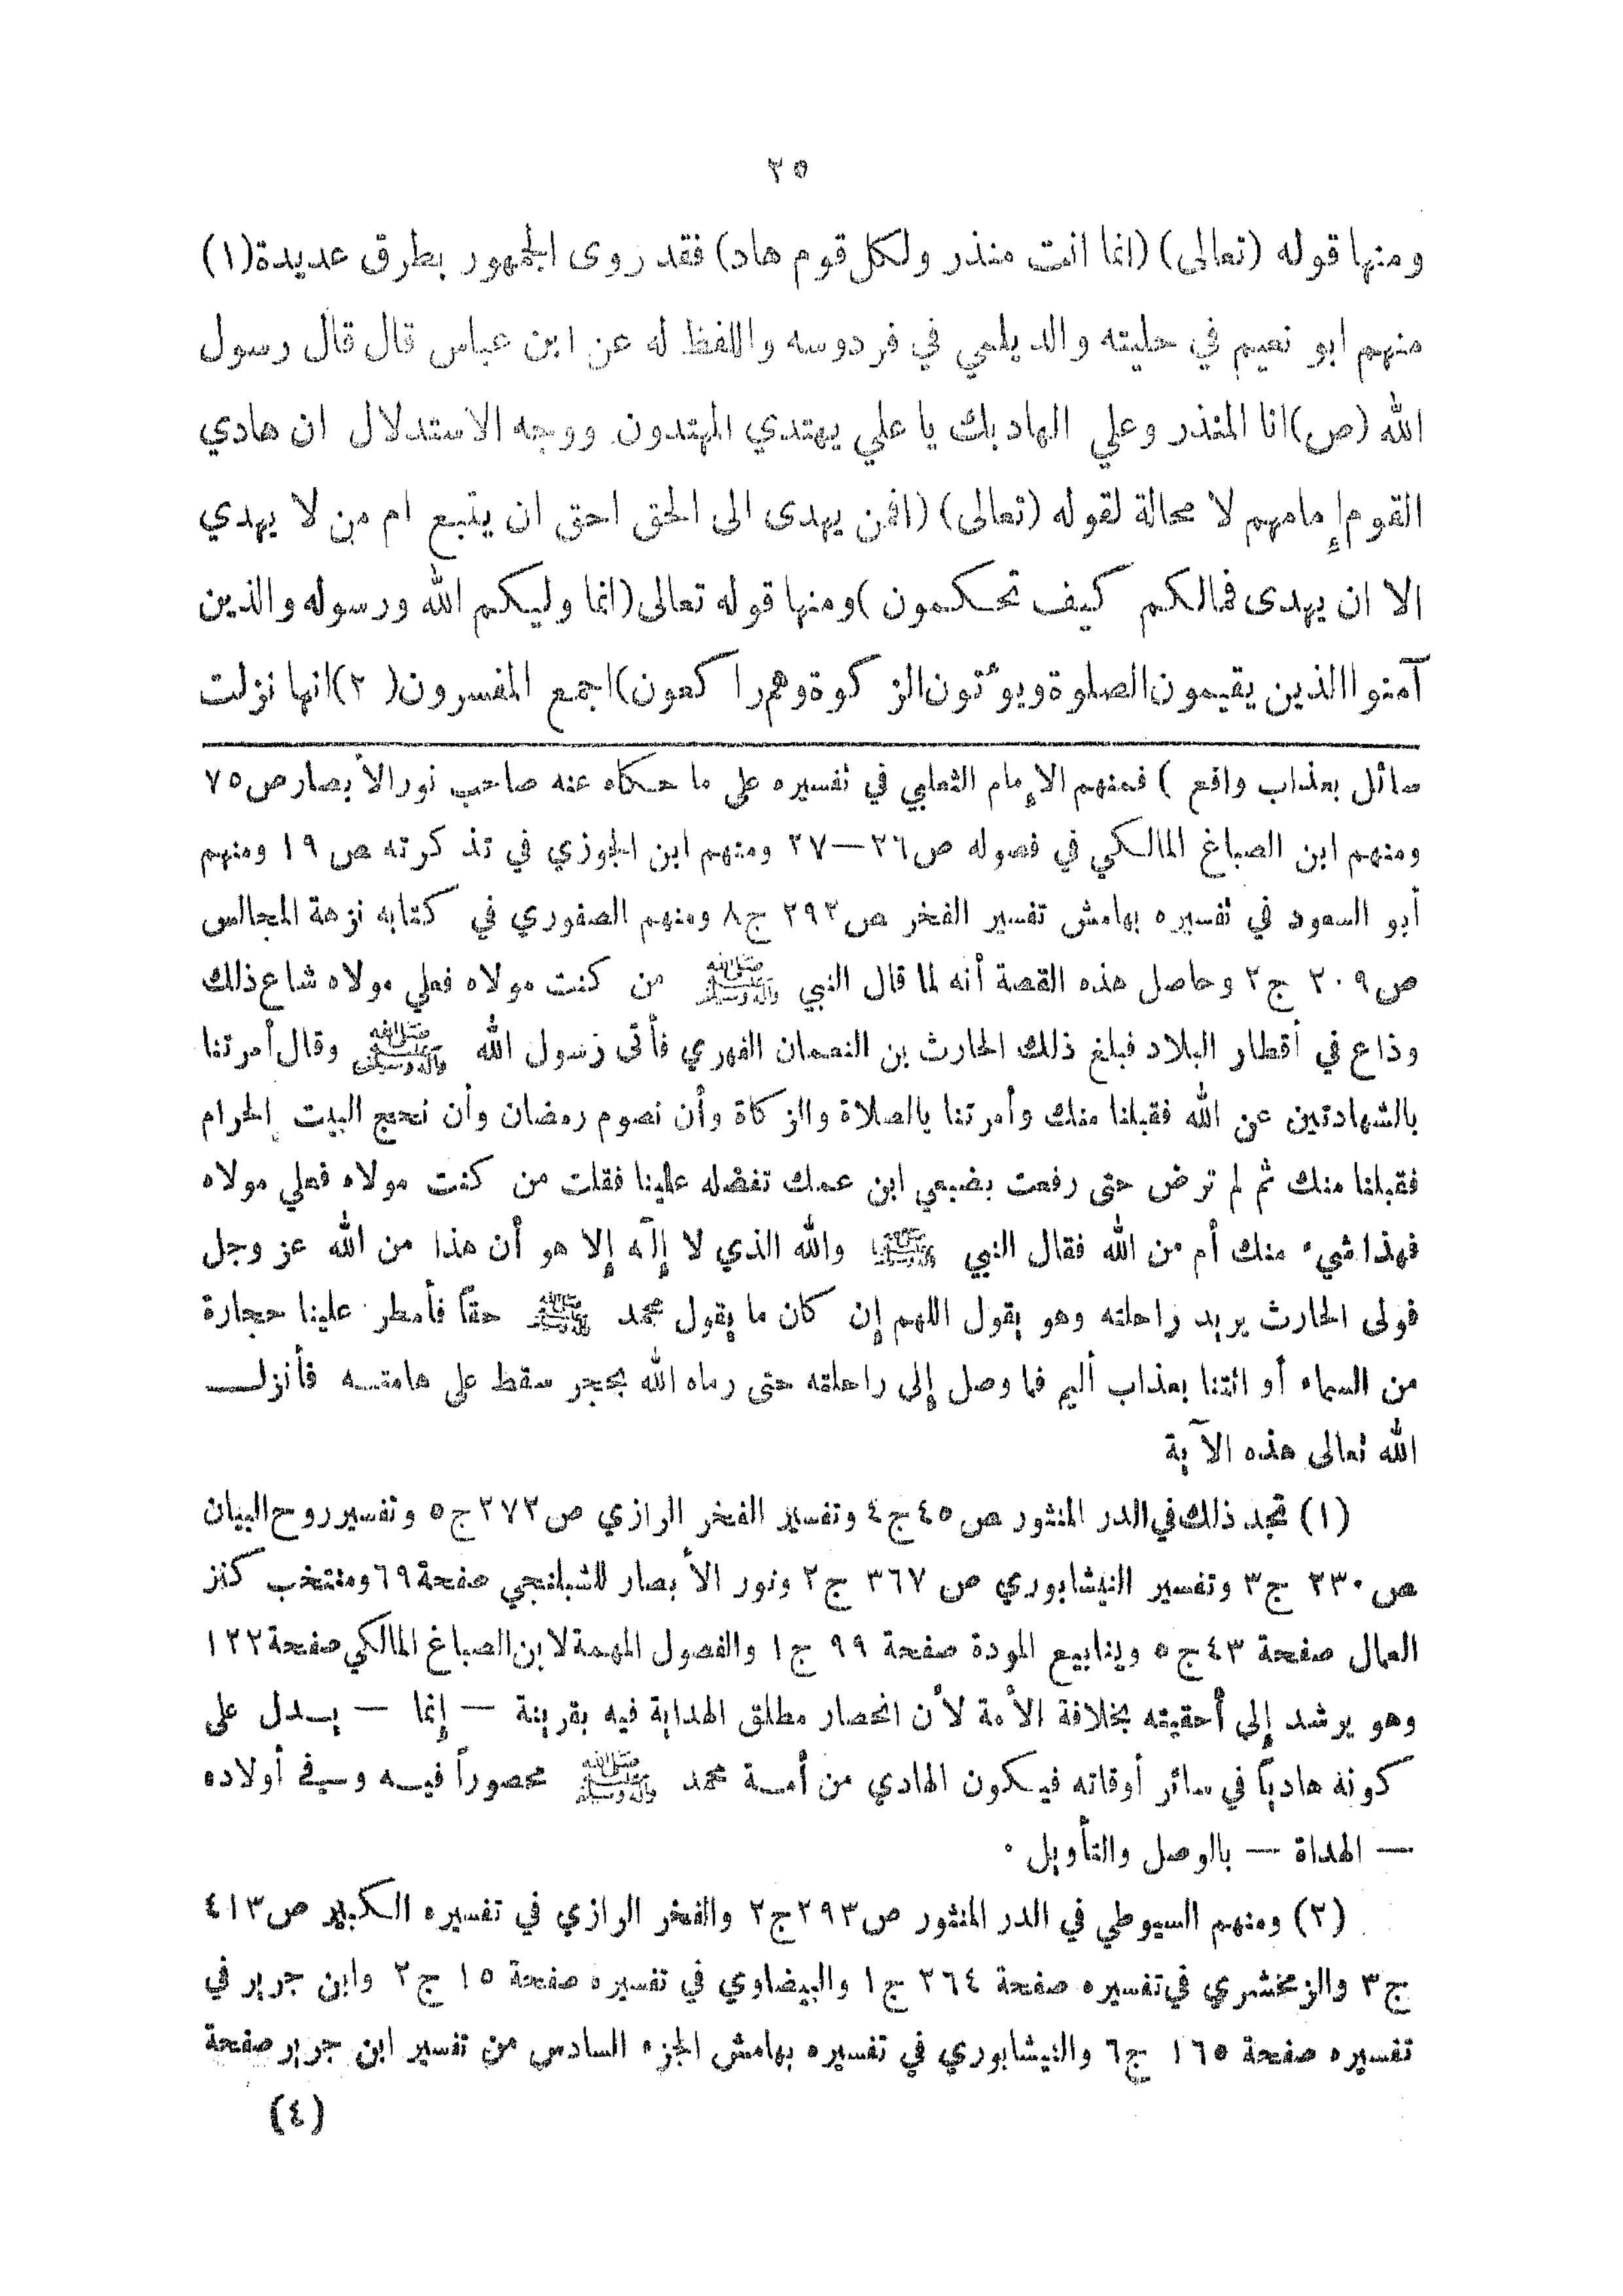 ٢٥
ومنها قوله (تعالى) (انما انت منذر ولكل قوم هاد) فقد روى الجمهور بطرق عديدة (١)
منهم ابو نعيم في حليته والديلمي في فردوسه واللفظ له عن ابن عباس قال قال رسول
الله (ص) انا المنذر وعلي الهاد بك يا علي يهتدي المهتدون ووجه الاستدلال ان هادي
القوم إمامهم لا محالة لقوله (تعالى) (افمن يهدى الى الحق احق ان يتبع ام من لا يهدي
الا ان يهدى فمالكم كيف تحكمون) ومنها قوله تعالى (انما وليكم الله ورسوله والذين
آمنوا الذين يقيمون الصلوة ويؤتون الزكوة وهم راكعون) اجمع المفسرون (٢) انها نزلت
سائل بعذاب واقع ) فمنهم الإمام الثعلبي في تفسيره على ما حكاه عنه صاحب نور الأبصار ص ٧٥
ومنهم ابن الصباغ المالكي في فصوله ص ٢٦ — ٢٧ ومنهم ابن الجوزي في تذكرته ص ١٩ ومنهم
أبو السعود في تفسيره بهامش تفسير الفخر ص ٢٩٢ ج ٨ ومنهم الصفوري في كتابه نزهة المجالس
ص ٢٠٩ ج ٢ وحاصل هذه القصة أنه لما قال النبي صلى الله عليه وآله وسلم من كنت مولاه فعلي مولاه شاع ذلك
وذاع في أقطار البلاد فبلغ ذلك الحارث بن النعمان الفهري فأتى رسول الله صلى الله عليه وآله وسلم وقال أمرتنا
بالشهادتين عن الله فقبلنا منك وأمرتنا بالصلاة والزكاة وأن نصوم رمضان وأن نحج البيت الحرام
فقبلنا منك ثم لم ترض حتى رفعت بضبعي ابن عمك تفضله علينا فقلت من كنت مولاه فعلي مولاه
فهذا شيء منك أم من الله فقال النبي ﷺ والله الذي لا إله إلا هو أن هذا من الله عز وجل
فولى الحارث يريد راحلته وهو يقول اللهم إن كان ما يقول محمد ﷺ حقاً فأمطر علينا حجارة
من السماء أو ائتنا بعذاب أليم فما وصل إلى راحلته حتى رماه الله بحجر سقط على هامته فأنزل
الله تعالى هذه الآية
(١) تجد ذلك في الدر المنثور ص ٤٥ ج ٤ وتفسير الفخر الرازي ص ٢٧٢ ج ٥ وتفسير روح البيان
ص ٢٣٠ ج ٣ وتفسير النيشابوري ص ٣٦٧ ج ٢ ونور الأبصار للشبلنجي صفحة ٦٩ ومنتخب كنز
العمال صفحة ٤٣ ج ٥ وينابيع المودة صفحة ٩٩ ج ١ والفصول المهمة لابن الصباغ المالكي صفحة ١٢٢
وهو يرشد إلى أحقيته بخلافة الأمة لأن انحصار مطلق الهداية فيه بقرينة — إنما — يدل على
كونه هادياً في سائر أوقاته فيكون الهادي من أمة محمد صلى الله عليه وآله وسلم محصوراً فيه وفي أولاده
— الهداة — بالوصل والتأويل .
(٢) ومنهم السيوطي في الدر المنثور ص ٢٩٣ ج ٢ والفخر الرازي في تفسيره الكبير ص ٤١٣
ج ٣ والزمخشري في تفسيره صفحة ٢٦٤ ج ١ والبيضاوي في تفسيره صفحة ١٥ ج ٢ وابن جرير في
تفسيره صفحة ١٦٥ ج ٦ والنيشابوري في تفسيره بهامش الجزء السادس من تفسير ابن جرير صفحة
(٤)